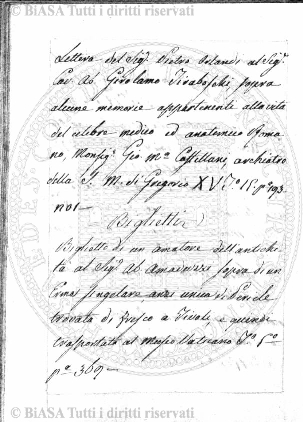 © BiASA Tutti i diritti riservati
Lettera del Sig.r Pietro Orlandi al Sig.r
Cav. Ab. Girolamo Tiraboschi, sopra
alcune memorie appartenenti alla vita
del celebre medico ed anatomico Roma
no, Monsig.r Gio. M.a Castellani archiatro
della S. M. di Gregorio XV T.o 15. p.o 193
Biglietti
Biglietto di un amatore dell'antichi
tà al Sig.r Ab. Amaduzzi sopra di un
Erma singolare anzi unica di Pericle
trovata di fresco a Tivoli, e quindi
trasportata al Museo Vaticano T.o 5.o
p.o 369 —
© BiASA Tutti i diritti riservati